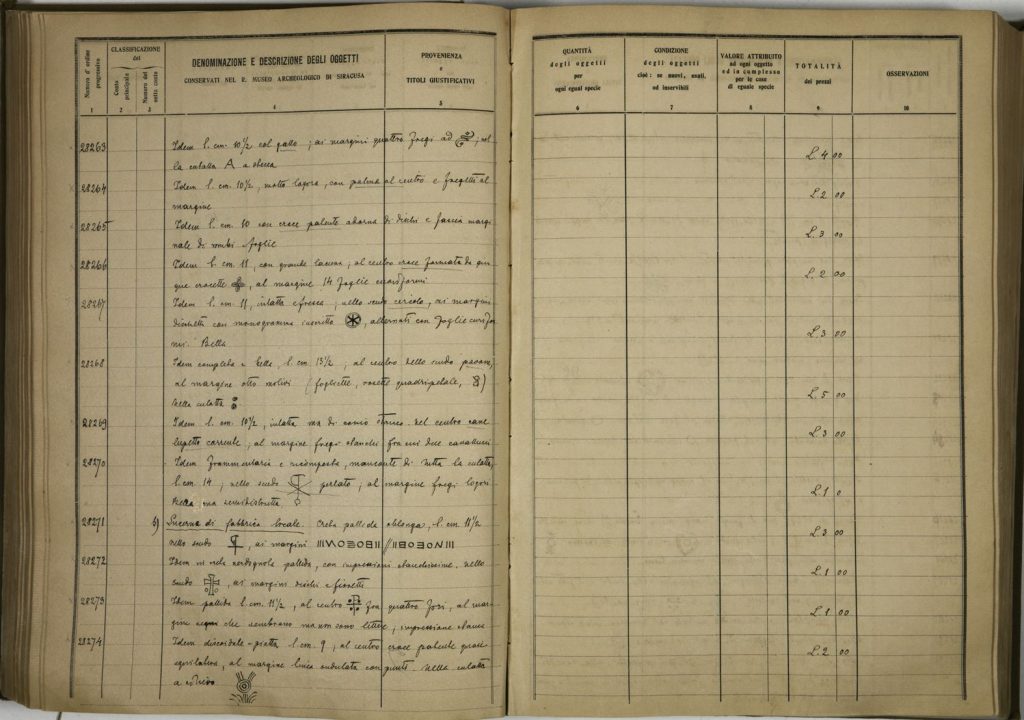 Numero d'ordine progressivo
CLASSIFICAZIONE del
Conto principale
Numero del sotto conto
DENOMINAZIONE E DESCRIZIONE DEGLI OGGETTI
CONSERVATI NEL R. MUSEO ARCHEOLOGICO DI SIRACUSA
PROVENIENZA
e
TITOLI GIUSTIFICATIVI
1 2 3 4 5
28263 Idem l. cm. 10½ col gallo; ai margini quattro fregi ad
la culatta A a stecca
28264 Idem l. cm. 10½, molto logora, con palma al centro e fregetti al
margine
28265 Idem l. cm. 10 con croce patente adorna di dischi e fascia margi
nale di rombi e foglie
28266 Idem l. cm. 11, con grande lacuna; al centro croce formata da cin
que crocette, al margine 14 foglie cuoriformi
28267 Idem l. cm. 11, intatta e fresca; nello scudo cerciolo, ai margini
dischetti con monogramma inscritto, alternati con foglie
Bella
28268 Idem completa e bella, l. cm. 13½; al centro dello scudo pavone,
al margine otto motivi (fogliette, rosette quadripetale, 8)
Nella culatta
28269 Idem l. cm. 10½, intatta ma di conio. Nel centro cane
lupetto corrente; al margine fregi fra cui due
28270 Idem frammentaria e ricomposta, mancante di tutta la culatta,
l. cm. 14; nello scudo perlato; al margine fregi logori
Bella ma semidistrutta
28271 b) Lucerna di fabbrica locale. Creta pallida oblonga, l. cm. 11½
nello scudo, ai margini
28272 Idem in creta pallida, con impressioni. Nello
scudo, ai margini dischi e
28273 Idem pallida l. cm. 11½, al centro fra quattro fori, al mar
gine segni che sembrano ma non sono lettere, impressione
28274 Idem discoidale-piatta l. cm. 9; al centro croce patente quasi
equilatera, al margine linea ondulata con punti. Nella culatta
a
QUANTITÀ
degli oggetti
per
ogni egual specie
CONDIZIONE
degli oggetti
cioè: se nuovi, usati,
od inservibili
VALORE ATTRIBUITO
ad ogni oggetto
ed in complesso
per le cose
di eguale specie
TOTALITÀ
dei prezzi
OSSERVAZIONI
6 7 8 9 10
L. 4 00
L. 2 00
L. 3 00
L. 2 00
L. 3 00
L. 5 00
L. 3 00
L. 1 0
L. 3 00
L. 1 00
L. 1 00
L. 2 00